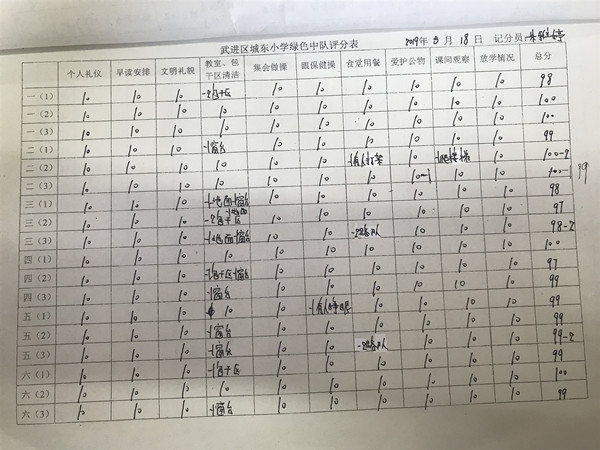 武进区城东小学绿色中队评分表 2019年3月18日 记分员
个人礼仪 早读安排 文明礼貌 教室、包干区清洁 集会做操 眼保健操 食堂用餐 爱护公物 课间观察 放学情况 总分
一（1） 10 10 10 -2包干区 10 10 10 10 10 10 98
一（2） 10 10 10 10 10 10 10 10 10 10 100
一（3） 10 10 10 10 10 10 10 10 10 10 100
二（1） 10 10 10 -1窗台 10 10 10 10 10 10 99
二（2） 10 10 10 10 10 10 -1有人打架 10 10 100-2
二（3） 10 10 10 10 10 10 10 10-1 10 10 100-1 99
三（1） 10 10 10 -1地面-1窗台 10 10 10 10 10 10 98
三（2） 10 10 10 -2包干区-1地面 10 10 10 10 10 10 97
三（3） 10 10 10 -1地面-1窗台 10 10 10 10 10 98-2
四（1） 10 10 10 10 10 10 10 10 10 10 100
四（2） 10 10 10 包干区-1窗台 10 10 10 10 10 10 97
四（3） 10 10 10 -1窗台 10 10 10 10 10 10 99
五（1） 10 10 10 10 10 -1有人睁眼 10 10 10 10 99
五（2） 10 10 10 -1窗台 10 10 10 10 10 10 99
五（3） 10 10 10 -1窗台 10 10 10 10 10 99-2
六（1） 10 10 10 -1包干区 10 10 10 10 10 10 99
六（2） 10 10 10 10 10 10 10 10 10 10 100
六（3） 10 10 10 -1窗台 10 10 10 10 10 10 99